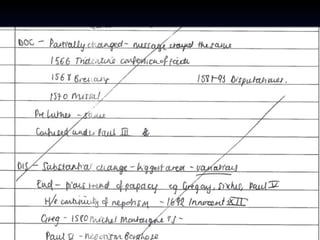 DOC - Partially changed - message stayed the same
1566 Tridentine confession of faith
1568 Breviary 1581-93 Disputationes.
1570 Missal
Pre Luther - same
Confused under Paul III &
DIS - Substantial change - biggest area - variations
End - pious trend of papacy eg Gregory, Sixtus, Paul V
H/e continuity of nepotism - 1692 Innocent XII
Greg - 1580 Michel Montaigne
Paul V - nepotism Borghese